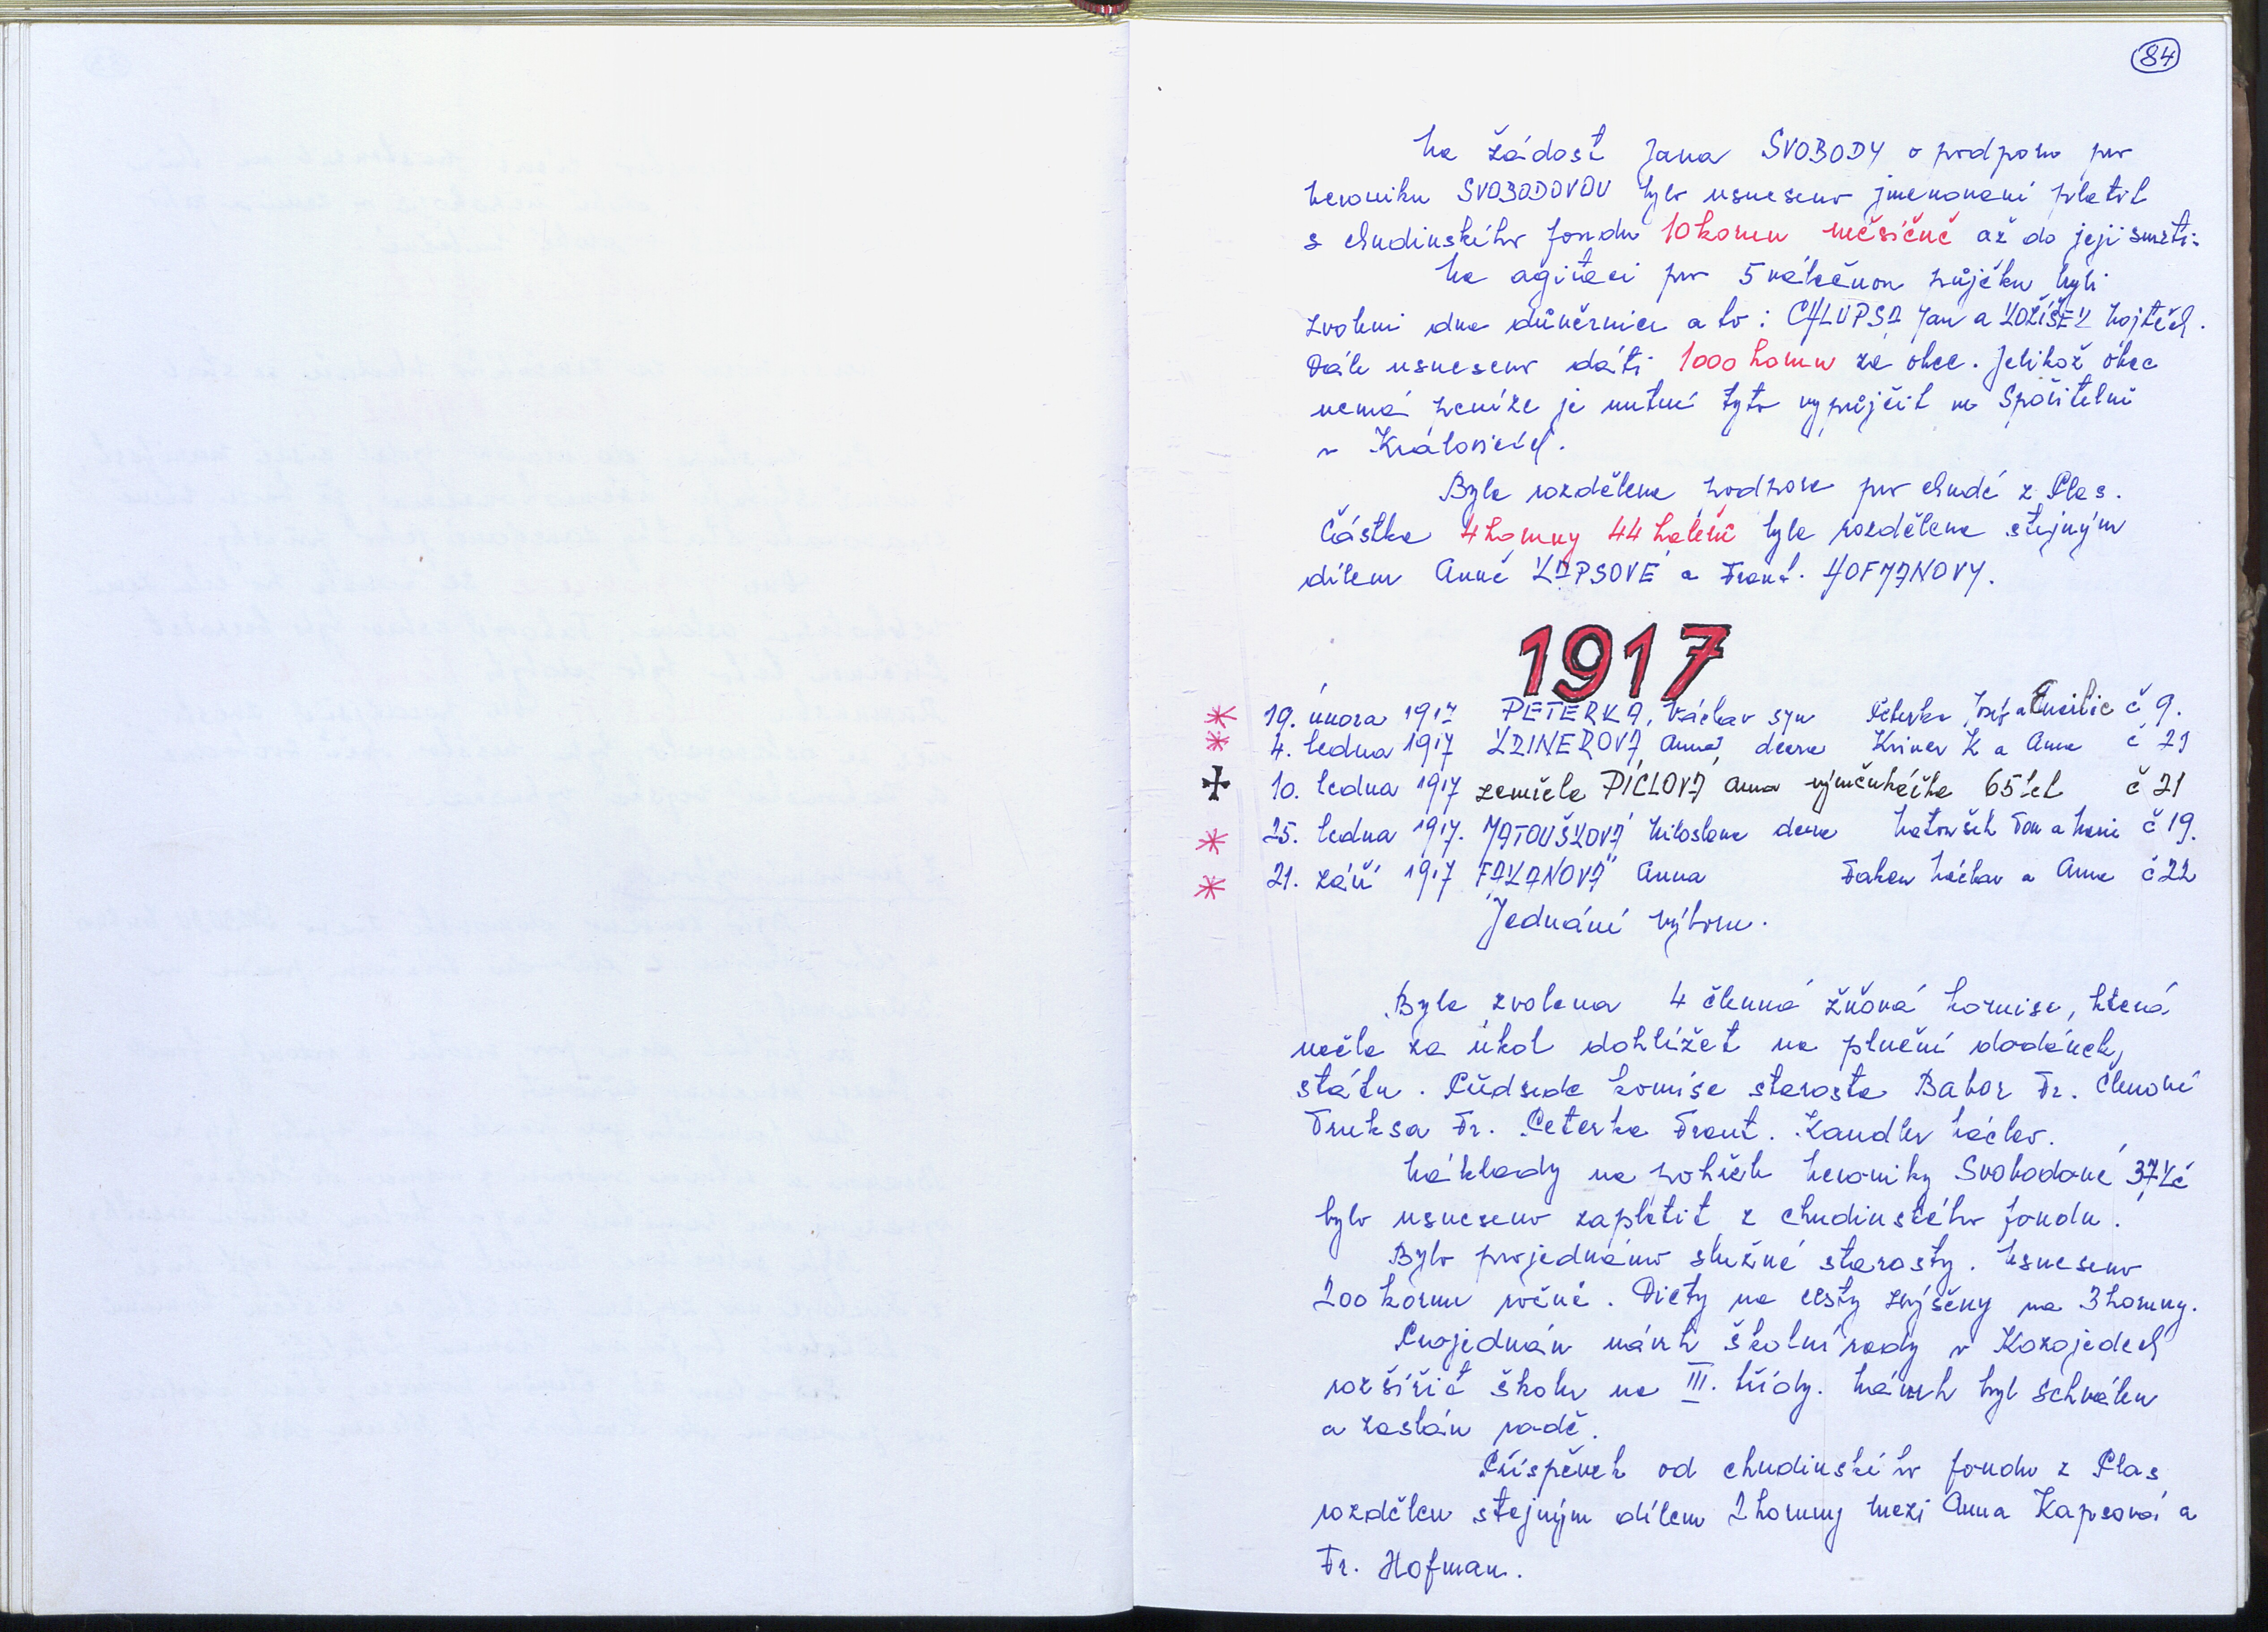 84
Na žádost Jana SVOBODY o podporu pro
Veroniku SVOBODOVOU bylo usneseno jmenované platit
s chudinského fondu 10 korun měsíčně až do její smrti.
Na agitaci pro 5 válečnou půjčku byli
zvoleni dva důvěrnici a to: CHLUPSA Jan a KOŽÍŠEK Vojtěch.
Dále usneseno dáti 1000 korun za obec. Jelikož obec
nemá peníze je nutné tyto vypůjčit ve Spořitelně
v Kralovicích.
Byla rozdělena podpora pro chudé z Plas.
Částka 4 koruny 44 haléřů byla rozdělena stejným
dílem Anně KAPSOVÉ a Frant. HOFMANOVY.
1917
19. února 1917 PETERKA, Václav syn Peterka Josef a Emilie č 9.
4. ledna 1917 KRINEROVÁ Anna, dcera Kriner K a Anna č 21
10. ledna 1917 zemřela PICLOVÁ Anna výměnkářka 65 let č 21
25. ledna 1917. MATOUŠKOVÁ Miloslava dcera Matoušek Fran a Marie č 19.
21. září 1917 FAKANOVÁ Anna Fakan Václav a Anna č 22
Jednání výboru.
Byla zvolena 4 členná žňová komise, která
měla za úkol dohlížet na plnění dodávek
státu. Předseda komise starosta Babor Fr. Členové
Truksa Fr. Peterka Frant. Kandler Václav.
Náklady na pohřeb Veroniky Svobodové 37 Kč
bylo usneseno zaplatit z chudinského fondu.
Bylo projednáno služné starosty. Usneseno
200 korun ročně. Diety na cesty zvýšeny na 3 koruny.
Projednán návrh školní rady v Kozojedech
rozšířit školu na III. třídy. Návrh byl schválen
a zaslán radě.
Příspěvek od chudinského fondu z Plas
rozdělen stejným dílem 2 koruny mezi Anna Kapsová a
Fr. Hofman.